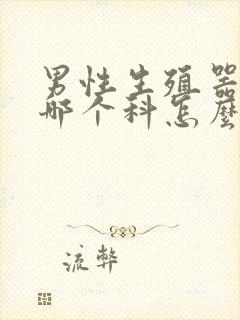 男性生殖器
那个科怎麼
流弊